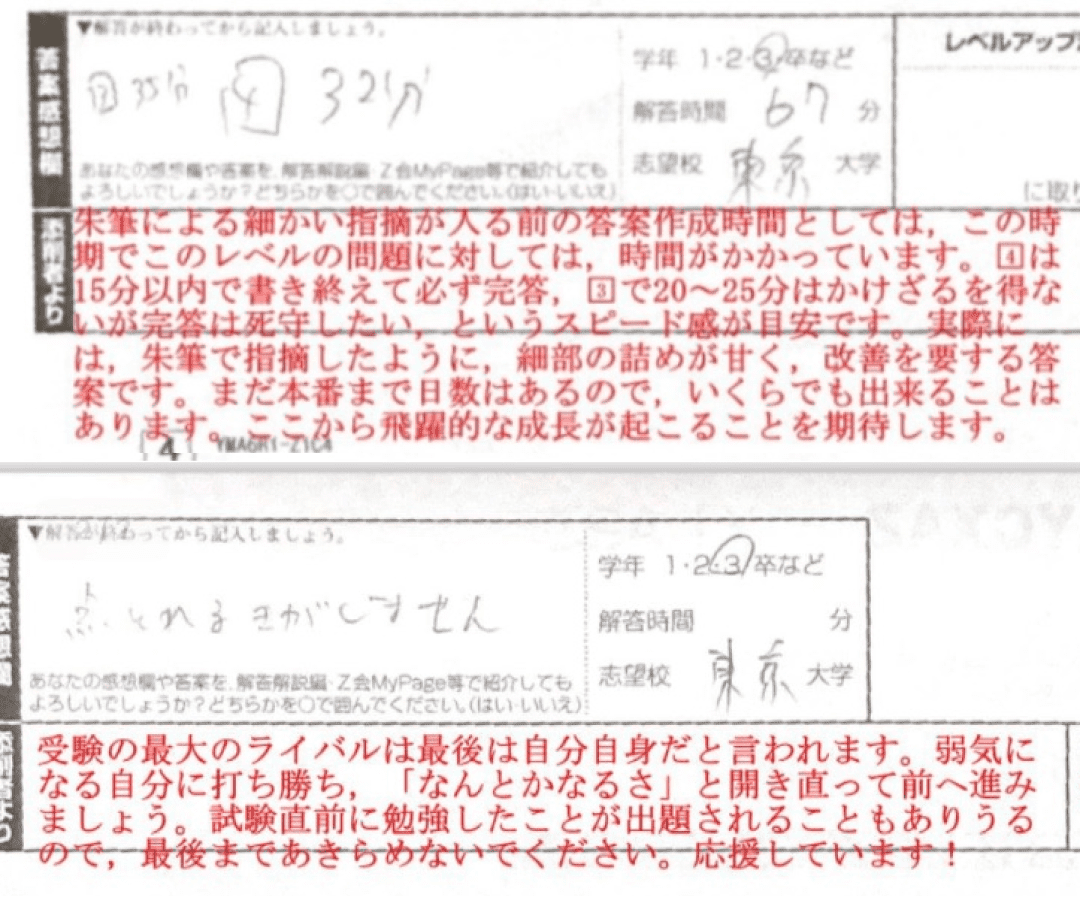 ▼解答が終わってから記入しましょう。
答案感想欄
③ 35分 ④ 32分
学年 1・2・3・卒など
解答時間 67 分
志望校 東京 大学
レベルアップ
あなたの感想欄や答案を、解答解説編・Z会MyPage等で紹介しても
よろしいでしょうか？どちらかを○で囲んでください。(はい・いいえ)
に取り
添削者より
朱筆による細かい指摘が入る前の答案作成時間としては，この時
期でこのレベルの問題に対しては，時間がかかっています。④は
15分以内で書き終えて必ず完答，③で20～25分はかけざるを得な
いが完答は死守したい，というスピード感が目安です。実際に
は，朱筆で指摘したように，細部の詰めが甘く，改善を要する答
案です。まだ本番まで日数はあるので，いくらでも出来ることは
あります。ここから飛躍的な成長が起こることを期待します。
4 YMA6R1-Z1C4
▼解答が終わってから記入しましょう。
答案感想欄
点とれるきがしません
学年 1・2・3・卒など
解答時間 分
志望校 東京 大学
あなたの感想欄や答案を、解答解説編・Z会MyPage等で紹介しても
よろしいでしょうか？どちらかを○で囲んでください。(はい・いいえ)
添削者より
受験の最大のライバルは最後は自分自身だと言われます。弱気に
なる自分に打ち勝ち，「なんとかなるさ」と開き直って前へ進み
ましょう。試験直前に勉強したことが出題されることもありうる
ので，最後まであきらめないでください。応援しています！